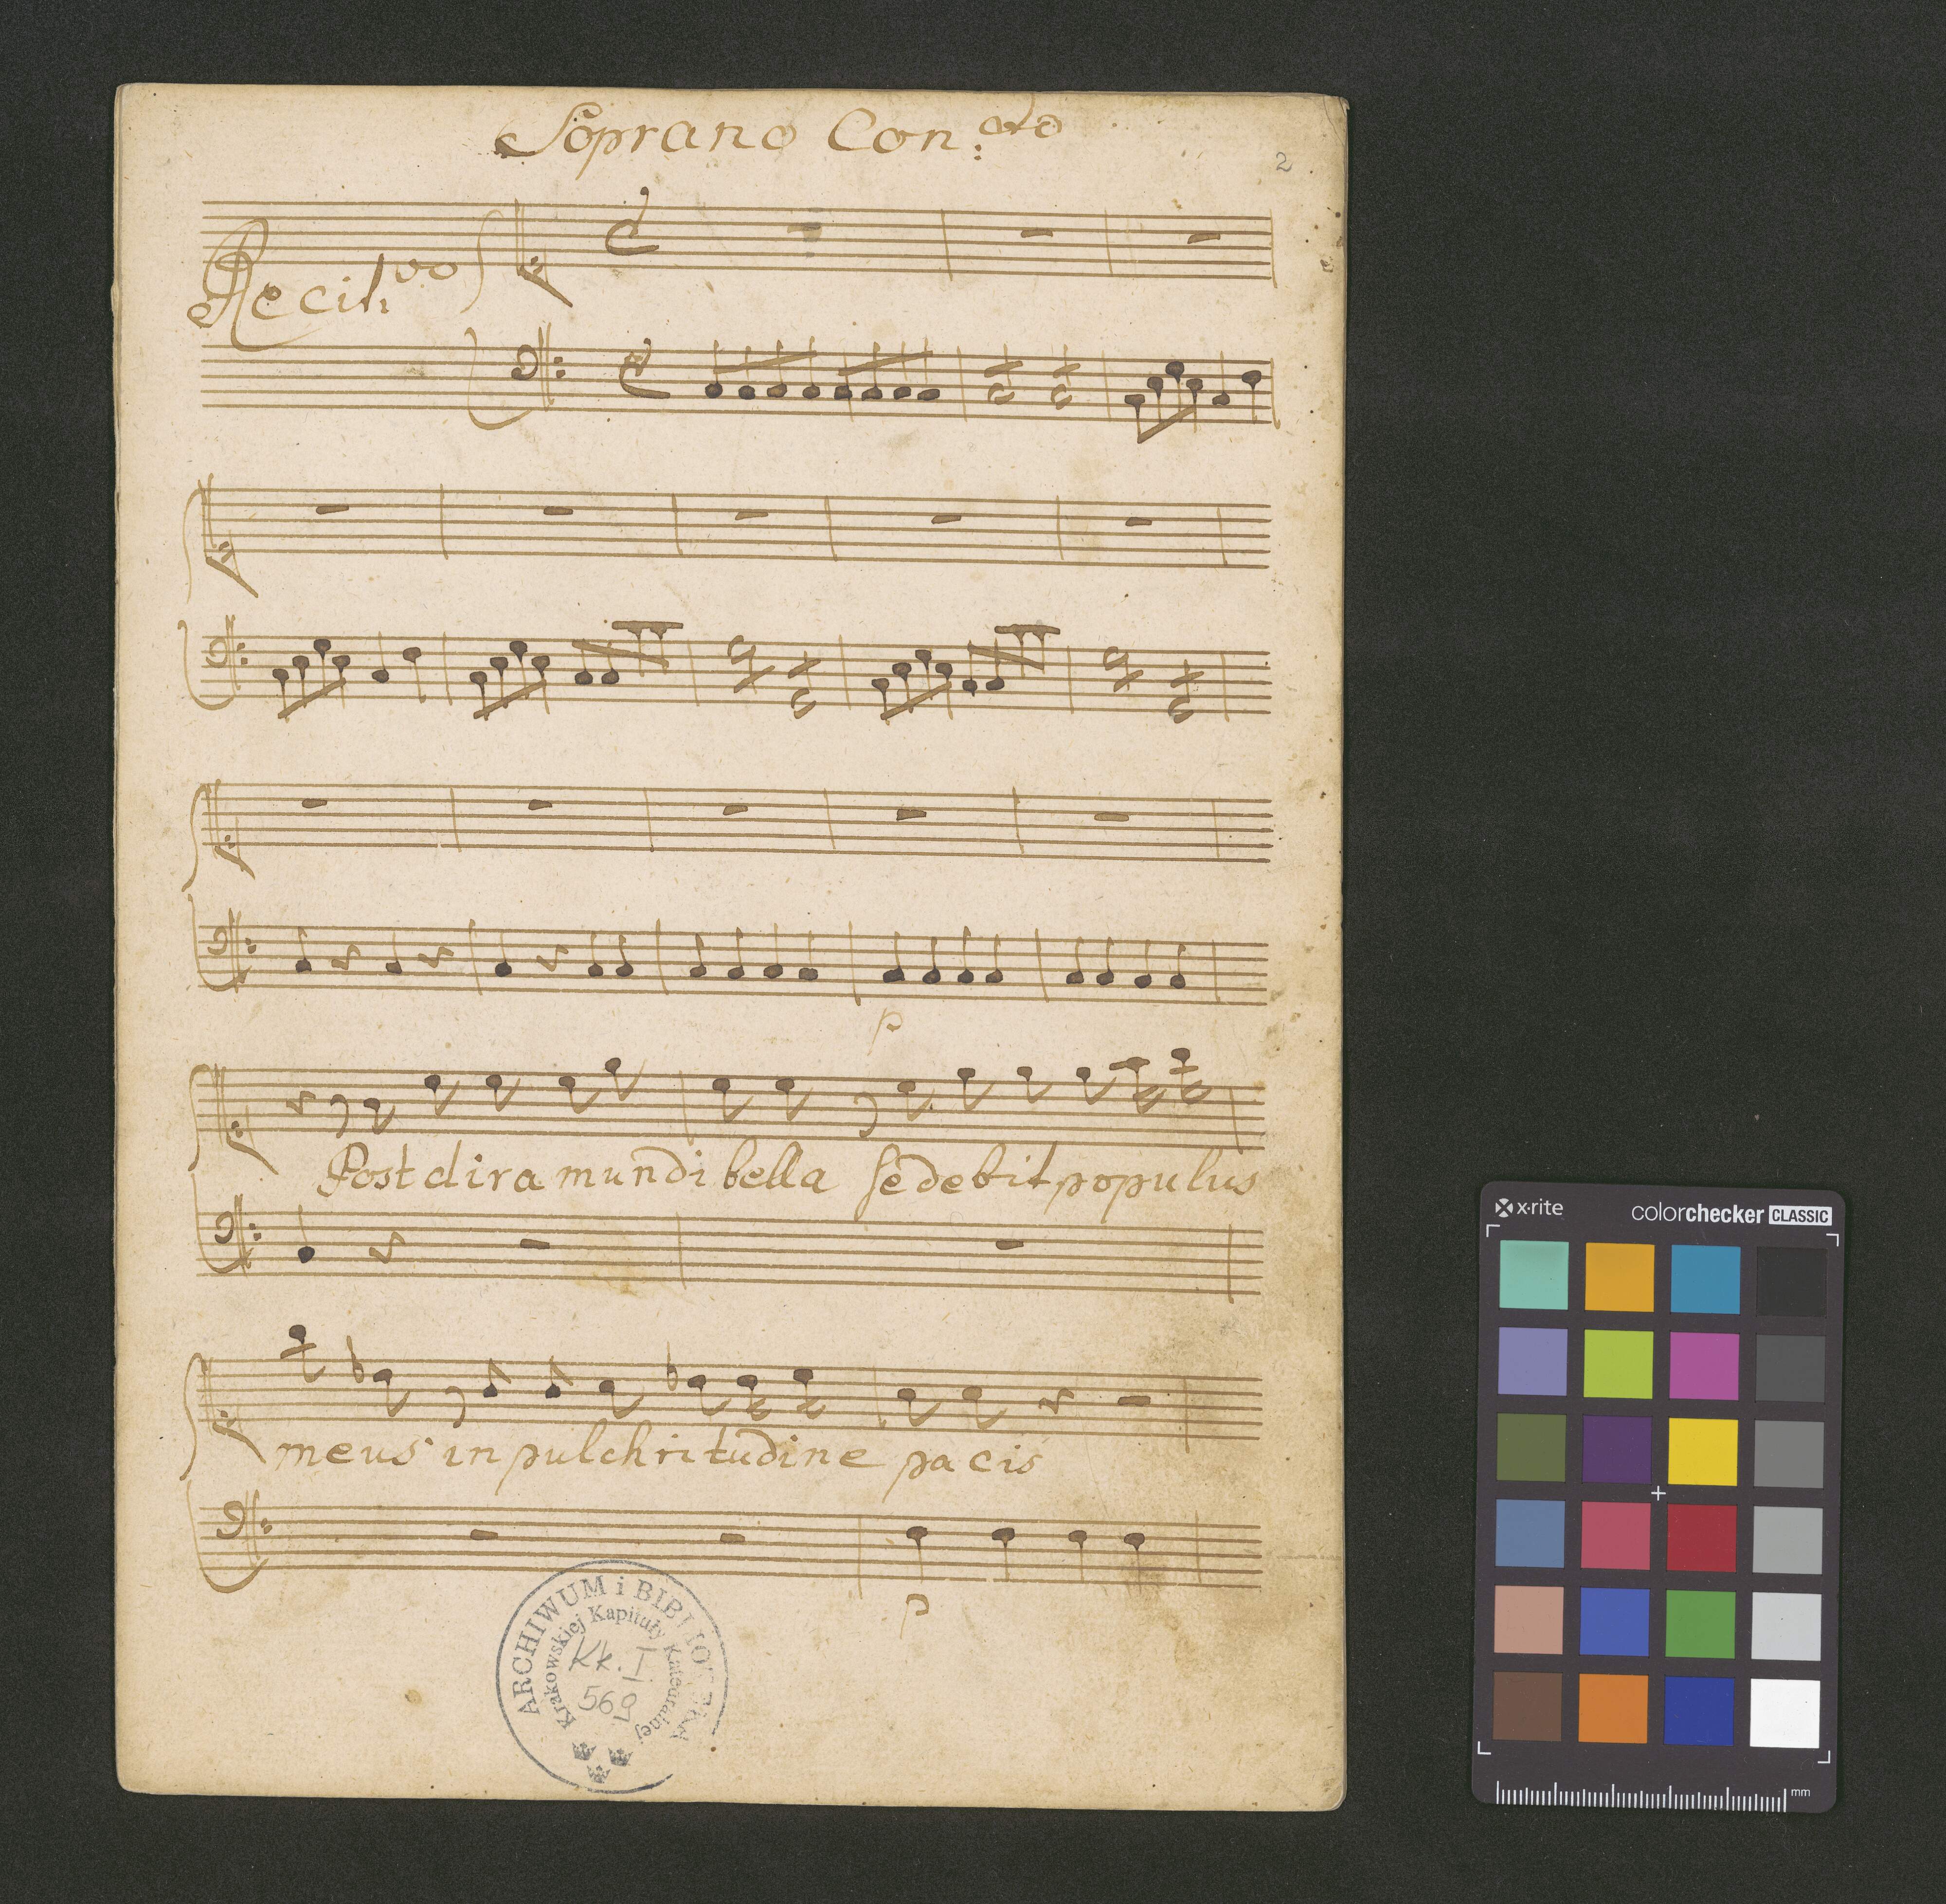 Soprano Con:cto
2
Recit:vo
p
Post dira mundi bella sedebit populus
meus in pulchritudine pacis
p
ARCHIWUM i BIBLIOTEKA
Krakowskiej Kapituły Katedralnej
Kk. I
569
x-rite
colorchecker CLASSIC
mm